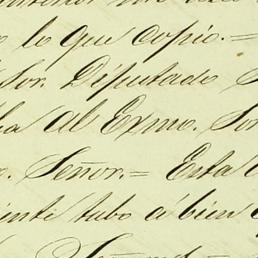 lo que copio.=
Sor. Diputado
al Exmo. Sor
Señor.= Esta
tubo á bien